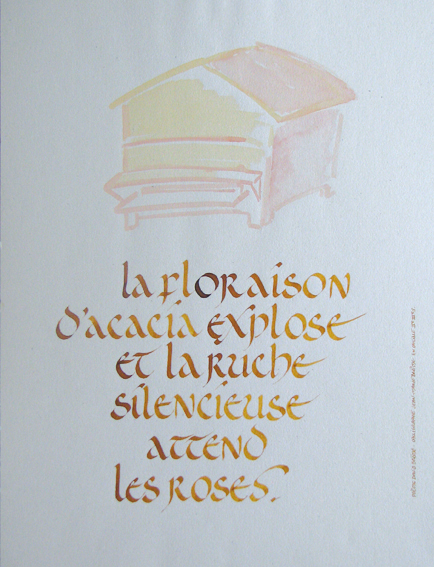 la floraison
d'acacia explose
et la ruche
silencieuse
attend
les roses.